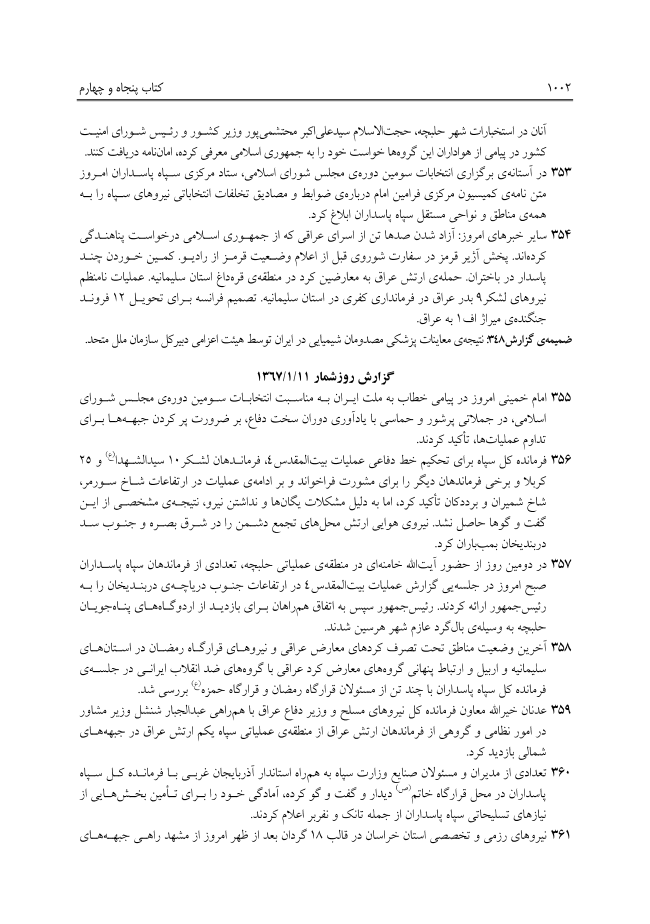 ۱۰۰۲ کتاب پنجاه و چهارم
آنان در استخبارات شهر حلبچه، حجت‌الاسلام سیدعلی‌اکبر محتشمی‌پور وزیر کشور و رئیس شورای امنیت
کشور در پیامی از هواداران این گروه‌ها خواست خود را به جمهوری اسلامی معرفی کرده، امان‌نامه دریافت کنند.
۳۵۳ در آستانه‌ی برگزاری انتخابات سومین دوره‌ی مجلس شورای اسلامی، ستاد مرکزی سپاه پاسداران امروز
متن نامه‌ی کمیسیون مرکزی فرامین امام درباره‌ی ضوابط و مصادیق تخلفات انتخاباتی نیروهای سپاه را به
همه‌ی مناطق و نواحی مستقل سپاه پاسداران ابلاغ کرد.
۳۵۴ سایر خبرهای امروز: آزاد شدن صدها تن از اسرای عراقی که از جمهوری اسلامی درخواست پناهندگی
کرده‌اند. پخش آژیر قرمز در سفارت شوروی قبل از اعلام وضعیت قرمز از رادیو. کمین خوردن چند
پاسدار در باختران. حمله‌ی ارتش عراق به معارضین کرد در منطقه‌ی قره‌داغ استان سلیمانیه. عملیات نامنظم
نیروهای لشکر۹ بدر عراق در فرمانداری کفری در استان سلیمانیه. تصمیم فرانسه برای تحویل ۱۲ فروند
جنگنده‌ی میراژ اف۱ به عراق.
ضمیمه‌ی گزارش۳۴۸: نتیجه‌ی معاینات پزشکی مصدومان شیمیایی در ایران توسط هیئت اعزامی دبیرکل سازمان ملل متحد.
گزارش روزشمار ۱۳۶۷/۱/۱۱
۳۵۵ امام خمینی امروز در پیامی خطاب به ملت ایران به مناسبت انتخابات سومین دوره‌ی مجلس شورای
اسلامی، در جملاتی پرشور و حماسی با یادآوری دوران سخت دفاع، بر ضرورت پر کردن جبهه‌ها برای
تداوم عملیات‌ها، تأکید کردند.
۳۵۶ فرمانده کل سپاه برای تحکیم خط دفاعی عملیات بیت‌المقدس٤، فرماندهان لشکر۱۰ سیدالشهدا(ع) و ۲۵
کربلا و برخی فرماندهان دیگر را برای مشورت فراخواند و بر ادامه‌ی عملیات در ارتفاعات شاخ سورمر،
شاخ شمیران و برددکان تأکید کرد، اما به دلیل مشکلات یگان‌ها و نداشتن نیرو، نتیجه‌ی مشخصی از این
گفت و گوها حاصل نشد. نیروی هوایی ارتش محل‌های تجمع دشمن را در شرق بصره و جنوب سد
دربندیخان بمب‌باران کرد.
۳۵۷ در دومین روز از حضور آیت‌الله خامنه‌ای در منطقه‌ی عملیاتی حلبچه، تعدادی از فرماندهان سپاه پاسداران
صبح امروز در جلسه‌یی گزارش عملیات بیت‌المقدس٤ در ارتفاعات جنوب دریاچه‌ی دربندیخان را به
رئیس‌جمهور ارائه کردند. رئیس‌جمهور سپس به اتفاق هم‌راهان برای بازدید از اردوگاه‌های پناه‌جویان
حلبچه به وسیله‌ی بال‌گرد عازم شهر هرسین شدند.
۳۵۸ آخرین وضعیت مناطق تحت تصرف کردهای معارض عراقی و نیروهای قرارگاه رمضان در استان‌های
سلیمانیه و اربیل و ارتباط پنهانی گروه‌های معارض کرد عراقی با گروه‌های ضد انقلاب ایرانی در جلسه‌ی
فرمانده کل سپاه پاسداران با چند تن از مسئولان قرارگاه رمضان و قرارگاه حمزه(ع) بررسی شد.
۳۵۹ عدنان خیرالله معاون فرمانده کل نیروهای مسلح و وزیر دفاع عراق با هم‌راهی عبدالجبار شنشل وزیر مشاور
در امور نظامی و گروهی از فرماندهان ارتش عراق از منطقه‌ی عملیاتی سپاه یکم ارتش عراق در جبهه‌های
شمالی بازدید کرد.
۳۶۰ تعدادی از مدیران و مسئولان صنایع وزارت سپاه به هم‌راه استاندار آذربایجان غربی با فرمانده کل سپاه
پاسداران در محل قرارگاه خاتم(ص) دیدار و گفت و گو کرده، آمادگی خود را برای تأمین بخش‌هایی از
نیازهای تسلیحاتی سپاه پاسداران از جمله تانک و نفربر اعلام کردند.
۳۶۱ نیروهای رزمی و تخصصی استان خراسان در قالب ۱۸ گردان بعد از ظهر امروز از مشهد راهی جبهه‌های